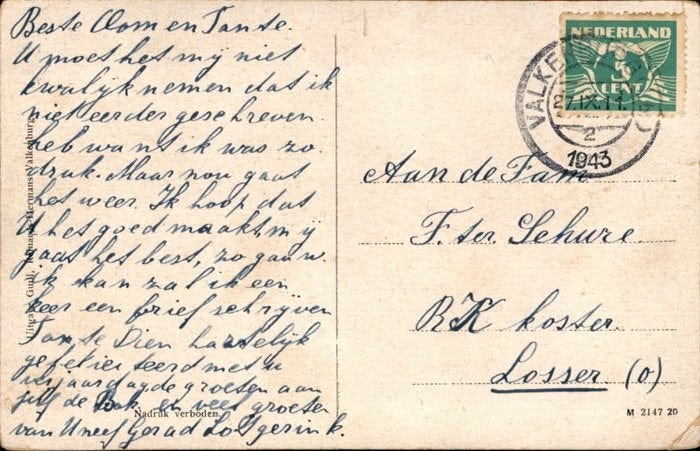 Beste Oom en Tante.
U moet het mij niet
kwalijk nemen dat ik
niet eerder geschreven
heb want ik was zo
druk. Maar nou gaat
het weer. Ik hoop dat
U het goed maakt mij
gaat het best, zo gauw
ik kan zal ik een
keer een brief schrijven
Tante Dien hartelijk
gefeliciteerd met u
verjaardag de groeten aan
de en veel groeten
van U neef Gerad Loggerink.
Uitgave Guill. Hermans, Valkenburg
Nadruk verboden.
NEDERLAND
3
CENT
VALKENBURG
27.IX.11
2
1943
Aan de Fam
F. ter Schure.
RK koster.
Losser (O)
M 2147 20